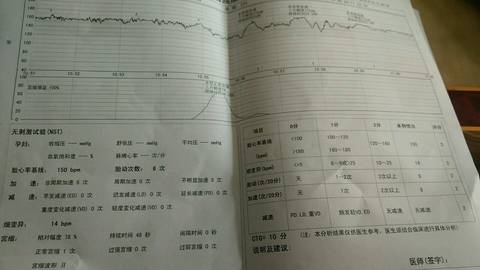 宫缩描记 100%
10:51 10:52 10:53 10:54 10:55 10:56 10:57 10:58
无刺激试验(NST)
孕妇: 收缩压 --- mmHg 舒张压 --- mmHg 平均压 --- mmHg
血氧饱和度 --- % 脉搏心率 --- 次/分
胎心率基线: 150 bpm 胎动次数: 6 次
加 速: 非周期加速 6 次 周期加速 0 次 不明显加速 0 次
减 速: 早发减速(ED) 0 次 晚发减速(LD) 0 次 延长减速(PD) 0 次
重度变化减速(VD) 0 次 轻度变化减速(VD) 0 次
细变异: 14 bpm
宫缩: 相对幅度 38 % 持续时间 48 秒 间隔时间 0 秒
正常宫缩 1 次 过强宫缩 0 次 过弱宫缩 0 次
宫缩波形 II
项目 0分 1分 2分 本例情况 评分
胎心率基线(bpm) <100 >180 100~120 160~180 120~160 150 2
细变异(bpm) <5 10~25 14 2
胎动(次/20分) 无 1~2次 3次以上 6 2
加速(次/20分) 无 1~2次 3次以上 6 2
减速 PD LD,重VD 频发轻VD,ED 无减速 无减速 2
CTG= 10 分 (注:本分析结果仅供医生参考,医生须结合临床进行具体分析)
说明及建议:
医师(签字):